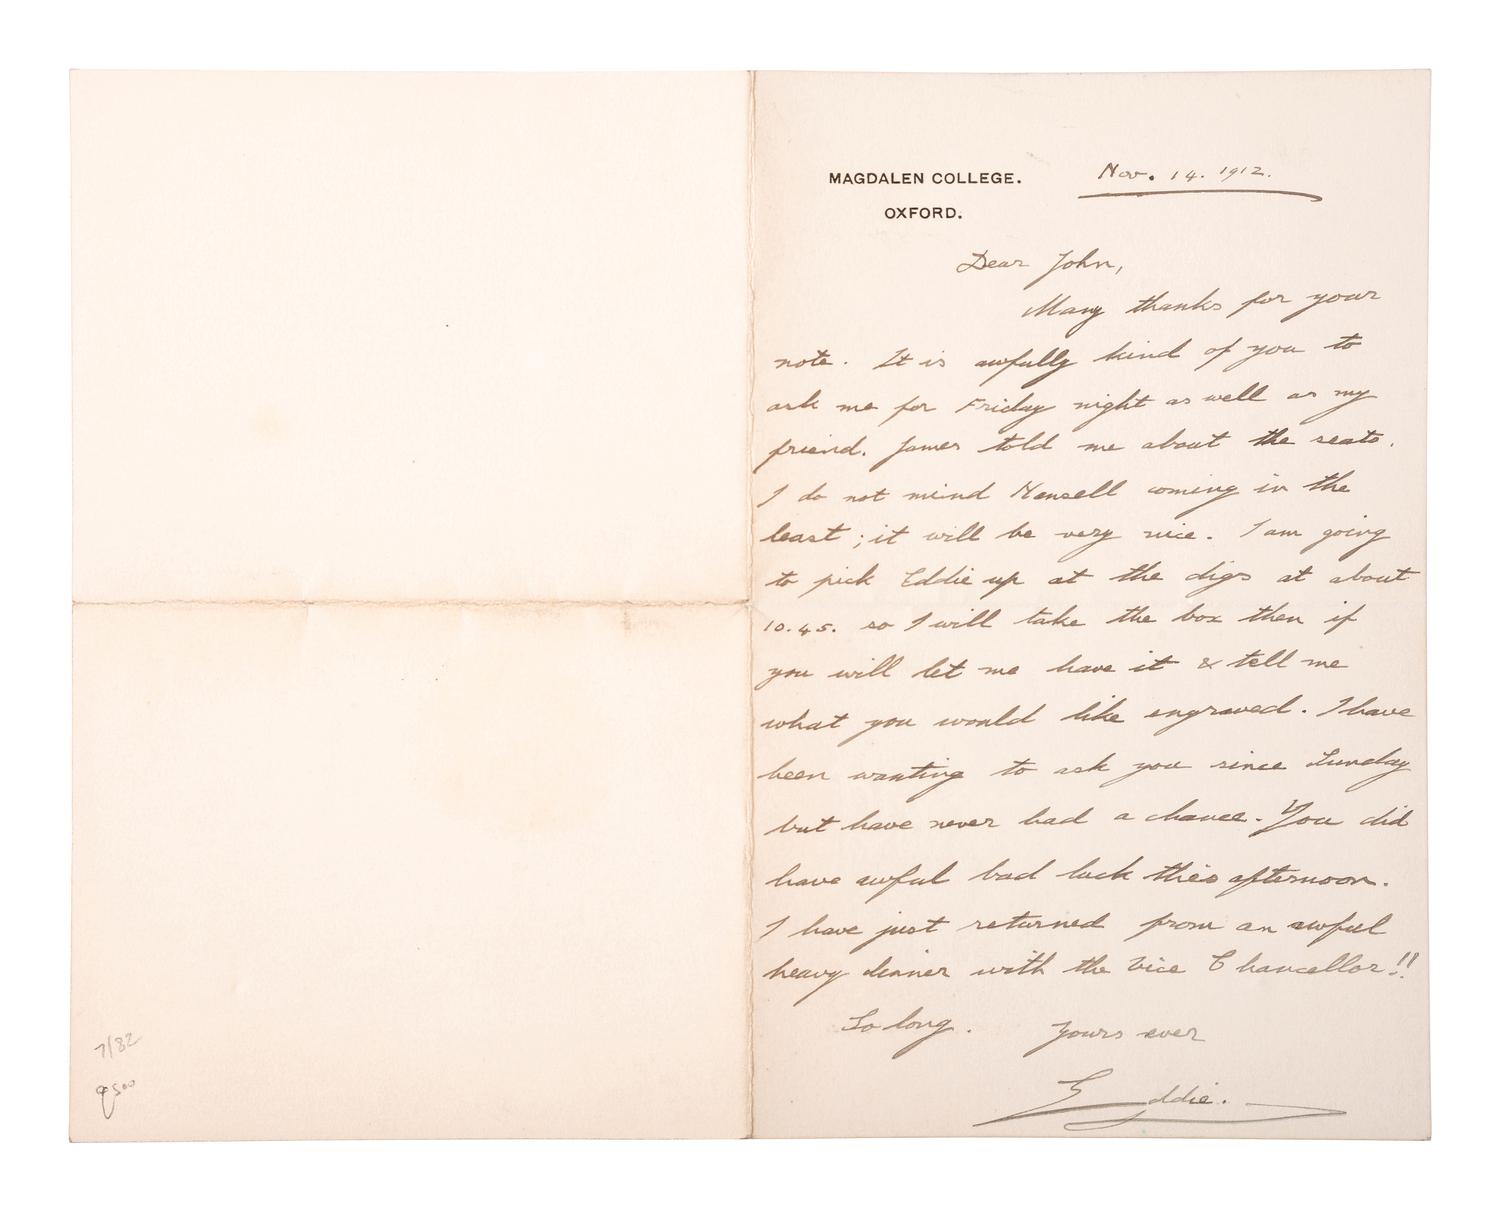 MAGDALEN COLLEGE.
OXFORD.
Nov. 14. 1912.
Dear John,
Many thanks for your
note. It is awfully kind of you to
ask me for Friday night as well as my
friend. James told me about the seats.
I do not mind Hansell coming in the
least; it will be very nice. I am going
to pick Eddie up at the digs at about
10.45. so I will take the box then if
you will let me have it & tell me
what you would like engraved. I have
been wanting to ask you since Sunday
but have never had a chance. You did
have awful bad luck this afternoon.
I have just returned from an awful
heavy dinner with the Vice Chancellor!!
So long. Yours ever
Eddie.
7/82